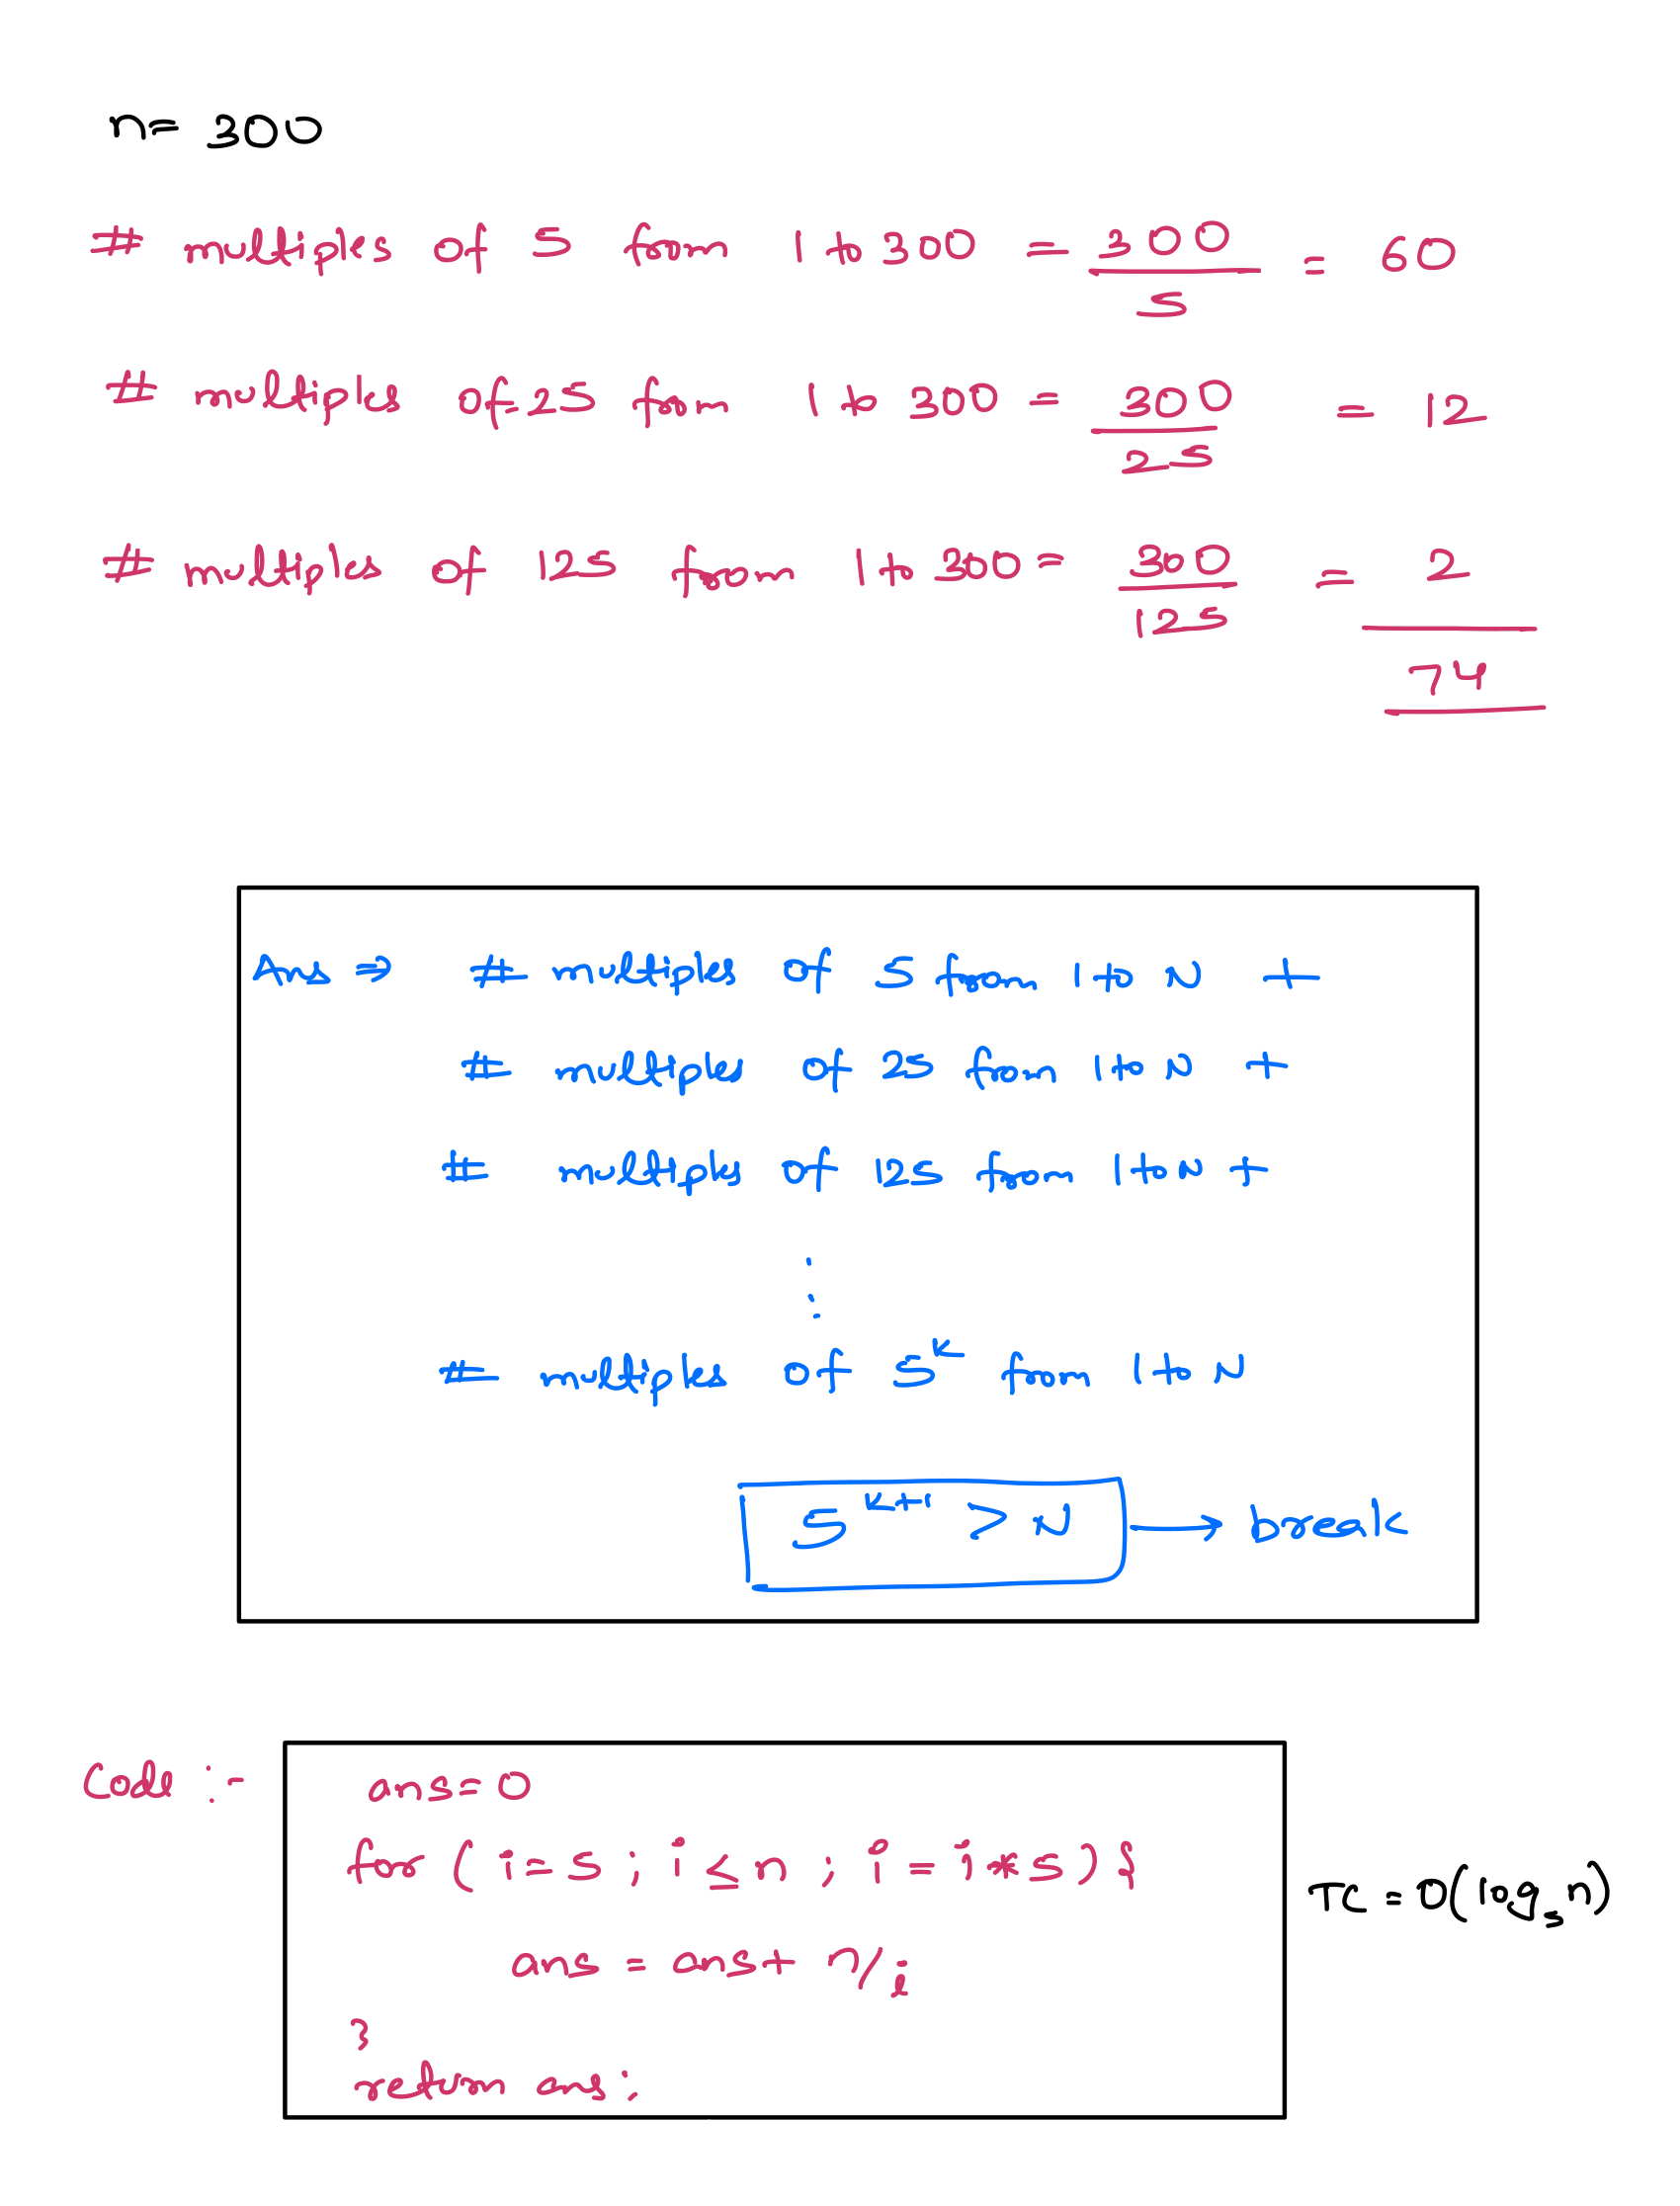 n= 300
# multiples of 5 from 1 to 300 = 300/5 = 60
# multiples of 25 from 1 to 300 = 300/25 = 12
# multiples of 125 from 1 to 300 = 300/125 = 2
74
Ans ⇒ # multiples of 5 from 1 to N +
# multiples of 25 from 1 to N +
# multiples of 125 from 1 to N +
⋮
# multiples of 5^k from 1 to N
5^{k+1} > N → break
Code :-
ans=0
for ( i=5 ; i ≤ n ; i = i*5 ) {
TC = O(log₅n)
ans = ans+ n/i
}
return ans;